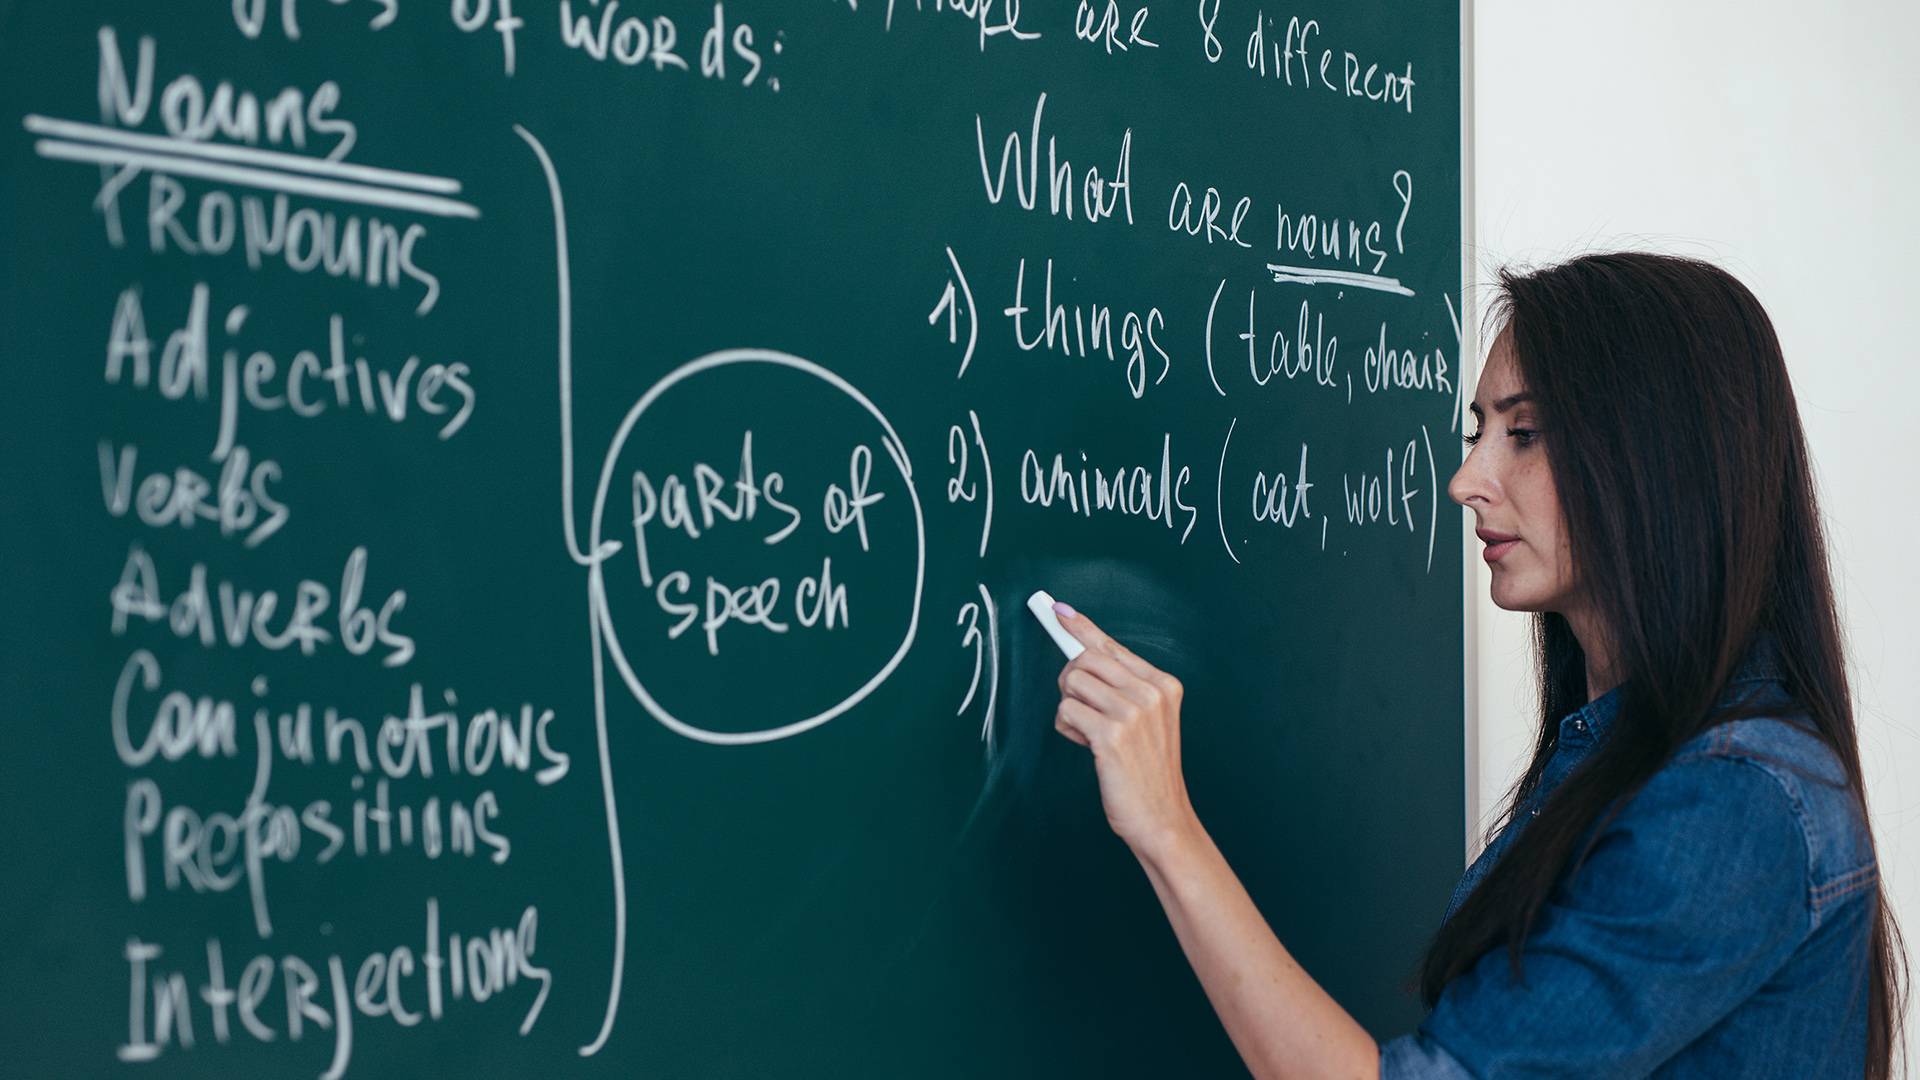 types of words:
there are 8 different
Nouns
Pronouns
Adjectives
Verbs
Adverbs
Conjunctions
Prepositions
Interjections
parts of
speech
What are nouns?
1) things (table, chair)
2) animals (cat, wolf)
3)